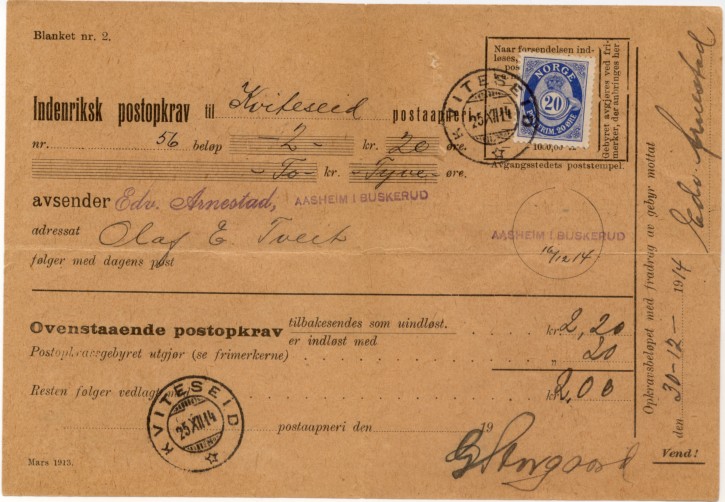 Blanket nr. 2.
Naar forsendelsen ind-
løses,
pos
Gebyret avgjøres ved fri-
merker, der anbringes her
NORGE
20
FRIM. 20 ØRE
1000,00
Avgangsstedets poststempel.
KVITESEID
25 XII 14
Indenriksk postopkrav til Kviteseid postaapneri
nr. 56 beløp -2- kr. 20 øre.
-To- kr. -Tyve- øre.
avsender Edv. Arnestad, AASHEIM I BUSKERUD
adressat Olaf E. Tveit
AASHEIM I BUSKERUD
følger med dagens post
16/12 14
Ovenstaaende postopkrav tilbakesendes som uindløst.
er indløst med kr. 2,20
Postopkravsgebyret utgjør (se frimerkerne) „ 20
Resten følger vedlagt kr. 2,00
KVITESEID
25 XII 14
postaapneri den 19
Mars 1913.
Opkravsbeløpet med fradrag av gebyr mottat
den 30-12- 1914 Edv. Arnestad
Vend!